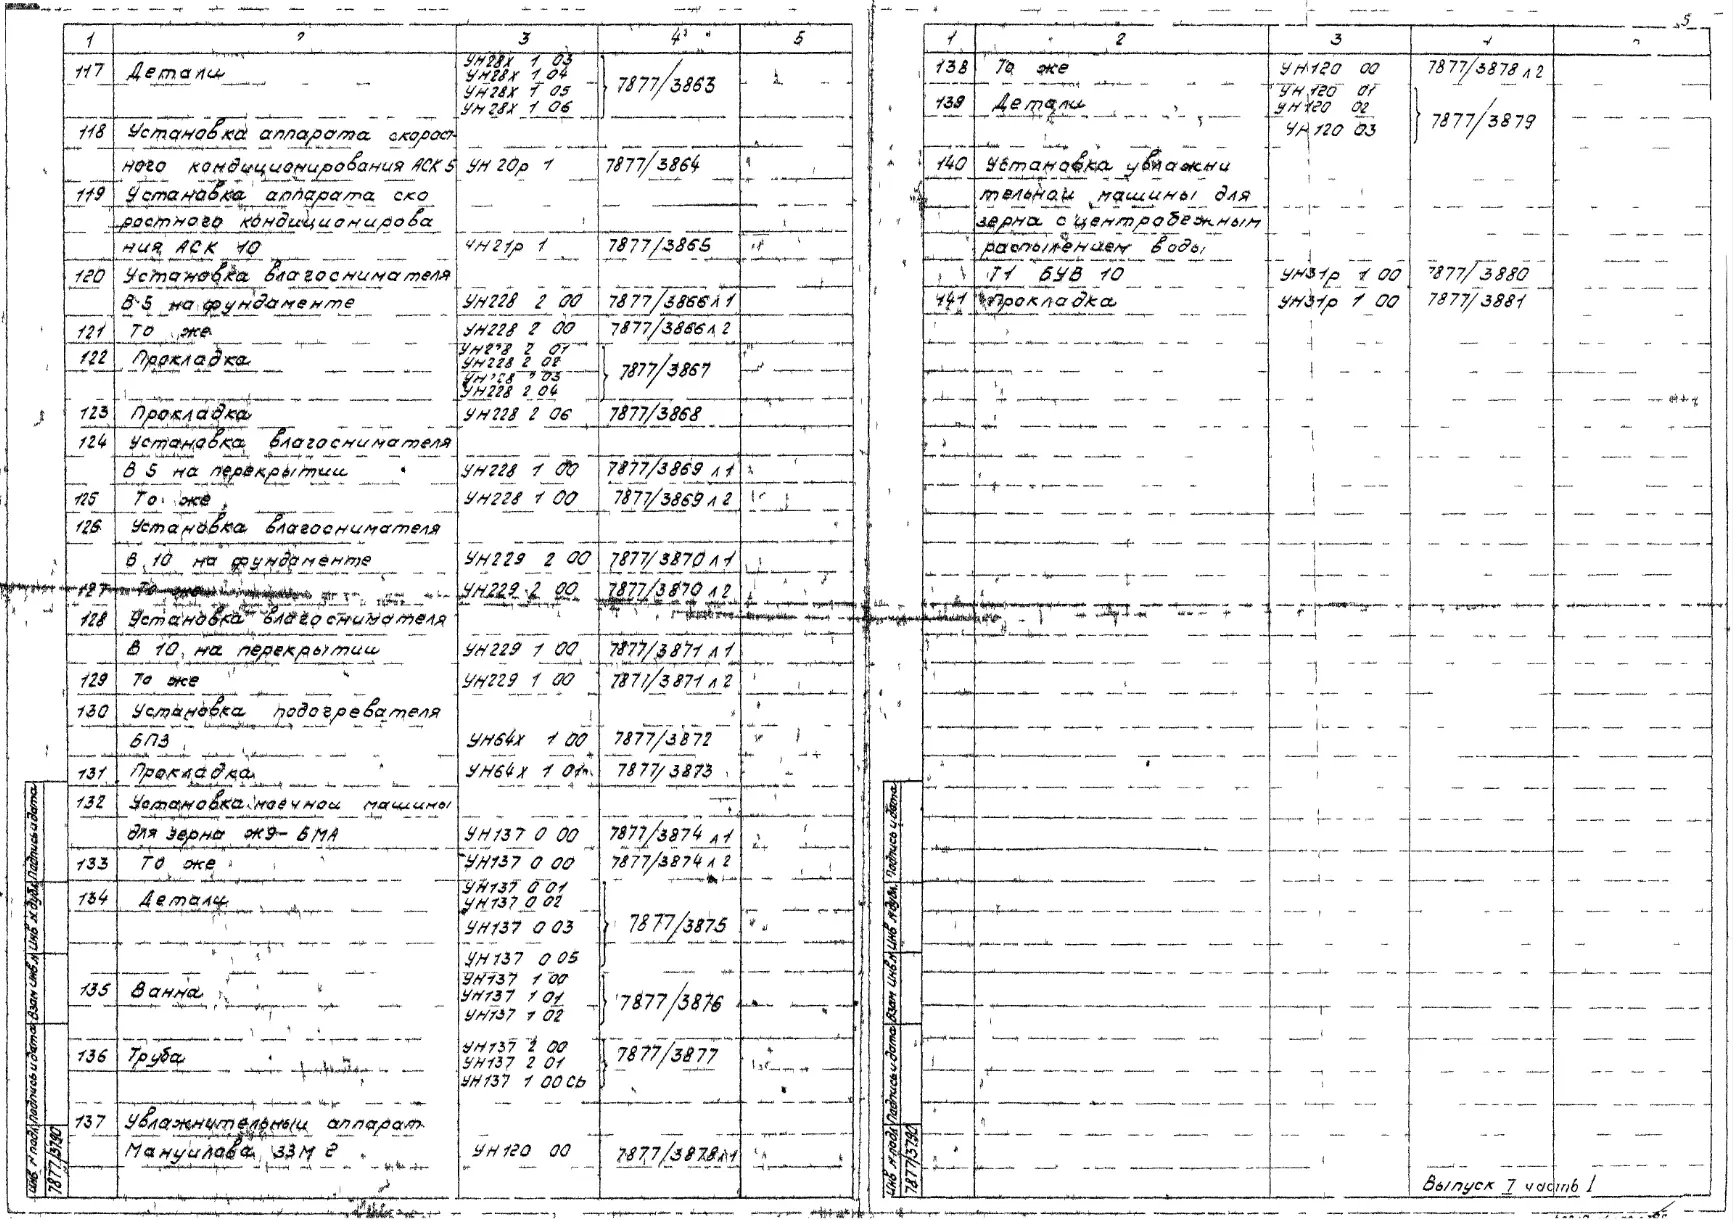 1 2 3 4 5
117 Детали УН28х 1 03
УН28х 1 04
УН28х 1 05
УН28х 1 06
7877/3863
118 Установка аппарата скорост-
ного кондиционирования АСК 5 УН 20р 1 7877/3864
119 Установка аппарата ско
ростного кондиционирова
ния АСК 10 УН21р 1 7877/3865
120 Установка влагоснимателя
В-5 на фундаменте УН228 2 00 7877/3866 л 1
121 То же УН228 2 00 7877/3866 л 2
122 Прокладка УН228 2 01
УН228 2 02
УН228 2 03
УН228 2 04
7877/3867
123 Прокладка УН228 2 06 7877/3868
124 Установка влагоснимателя
В 5 на перекрытии УН228 1 00 7877/3869 л 1
125 То же УН228 1 00 7877/3869 л 2
126 Установка влагоснимателя
В 10 на фундаменте УН229 2 00 7877/3870 л 1
127 То же УН229 2 00 7877/3870 л 2
128 Установка влагоснимателя
В 10 на перекрытии УН229 1 00 7877/3871 л 1
129 То же УН229 1 00 7877/3871 л 2
130 Установка подогревателя
БПЗ УН64х 1 00 7877/3872
131 Прокладка УН64х 1 01 7877/3873
132 Установка моечной машины
для зерна Ж9-БМА УН137 0 00 7877/3874 л 1
133 То же УН137 0 00 7877/3874 л 2
134 Детали УН137 0 01
УН137 0 02
УН137 0 03
УН137 0 05
7877/3875
135 Ванна УН137 1 00
УН137 1 01
УН137 1 02
7877/3876
136 Труба УН137 2 00
УН137 2 01
УН137 1 00 СБ
7877/3877
137 Увлажнительный аппарат
Мануйлова ЗЗМ 2 УН120 00 7877/3878 л 1
Инв N подл Подпись и дата Взам инв N Инв N дубл Подпись и дата
7877/3790
5
1 2 3 4
138 То же УН120 00 7877/3878 л 2
139 Детали УН120 01
УН120 02
УН120 03
7877/3879
140 Установка увлажни
тельной машины для
зерна с центробежным
распылением воды
Т1 БУВ 10 УН31р 1 00 7877/3880
141 Прокладка УН31р 1 00 7877/3881
Инв N подл Подпись и дата Взам инв N Инв N дубл Подпись и дата
7877/3790
Выпуск 7 часть 1